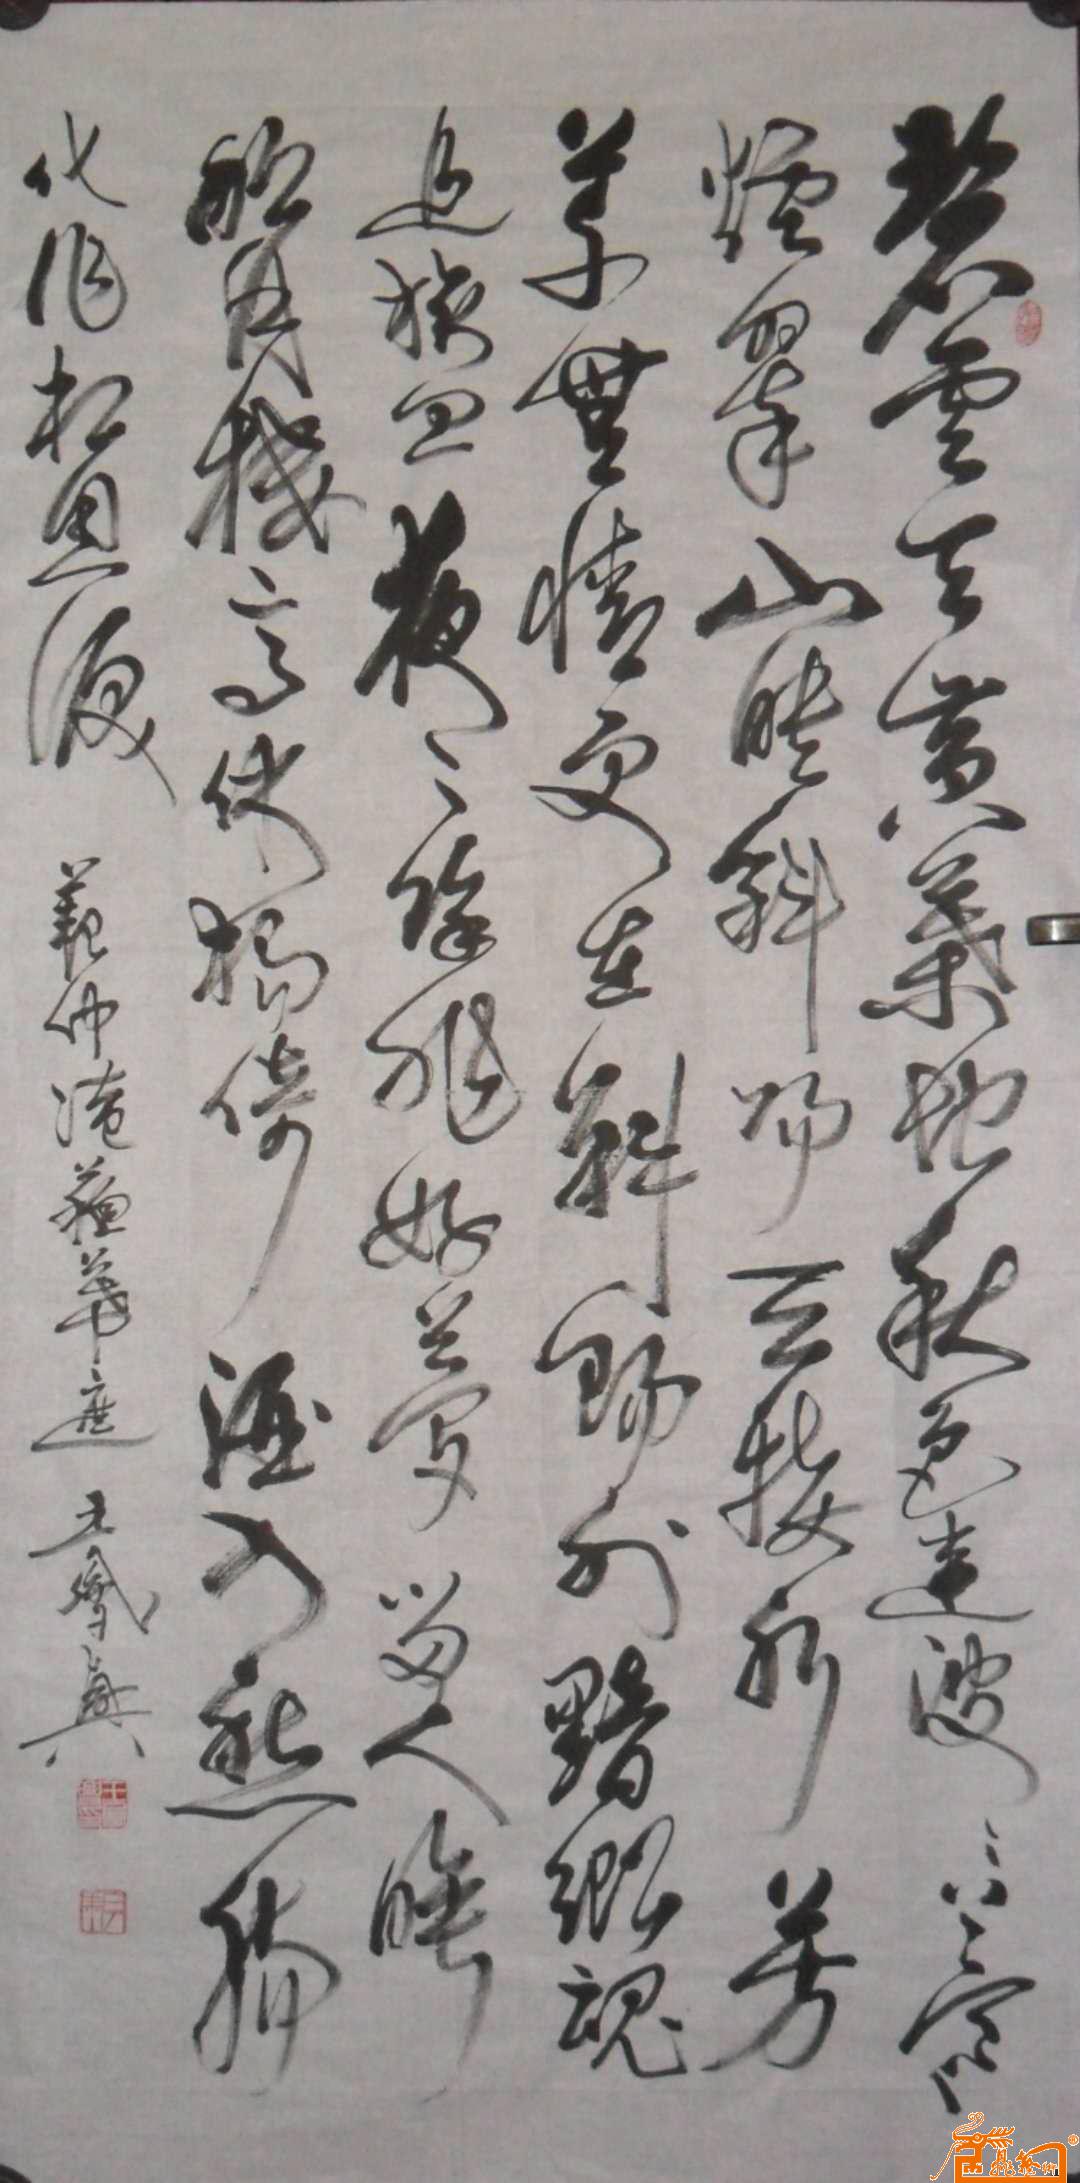 碧雲天黄葉地秋色連波波上寒
煙翠山映斜陽天接水芳
草無情更在斜陽外黯鄉魂
追旅思夜夜除非好夢留人睡
明月樓高休獨倚酒入愁腸
化作相思淚
范仲淹蘇幕遮